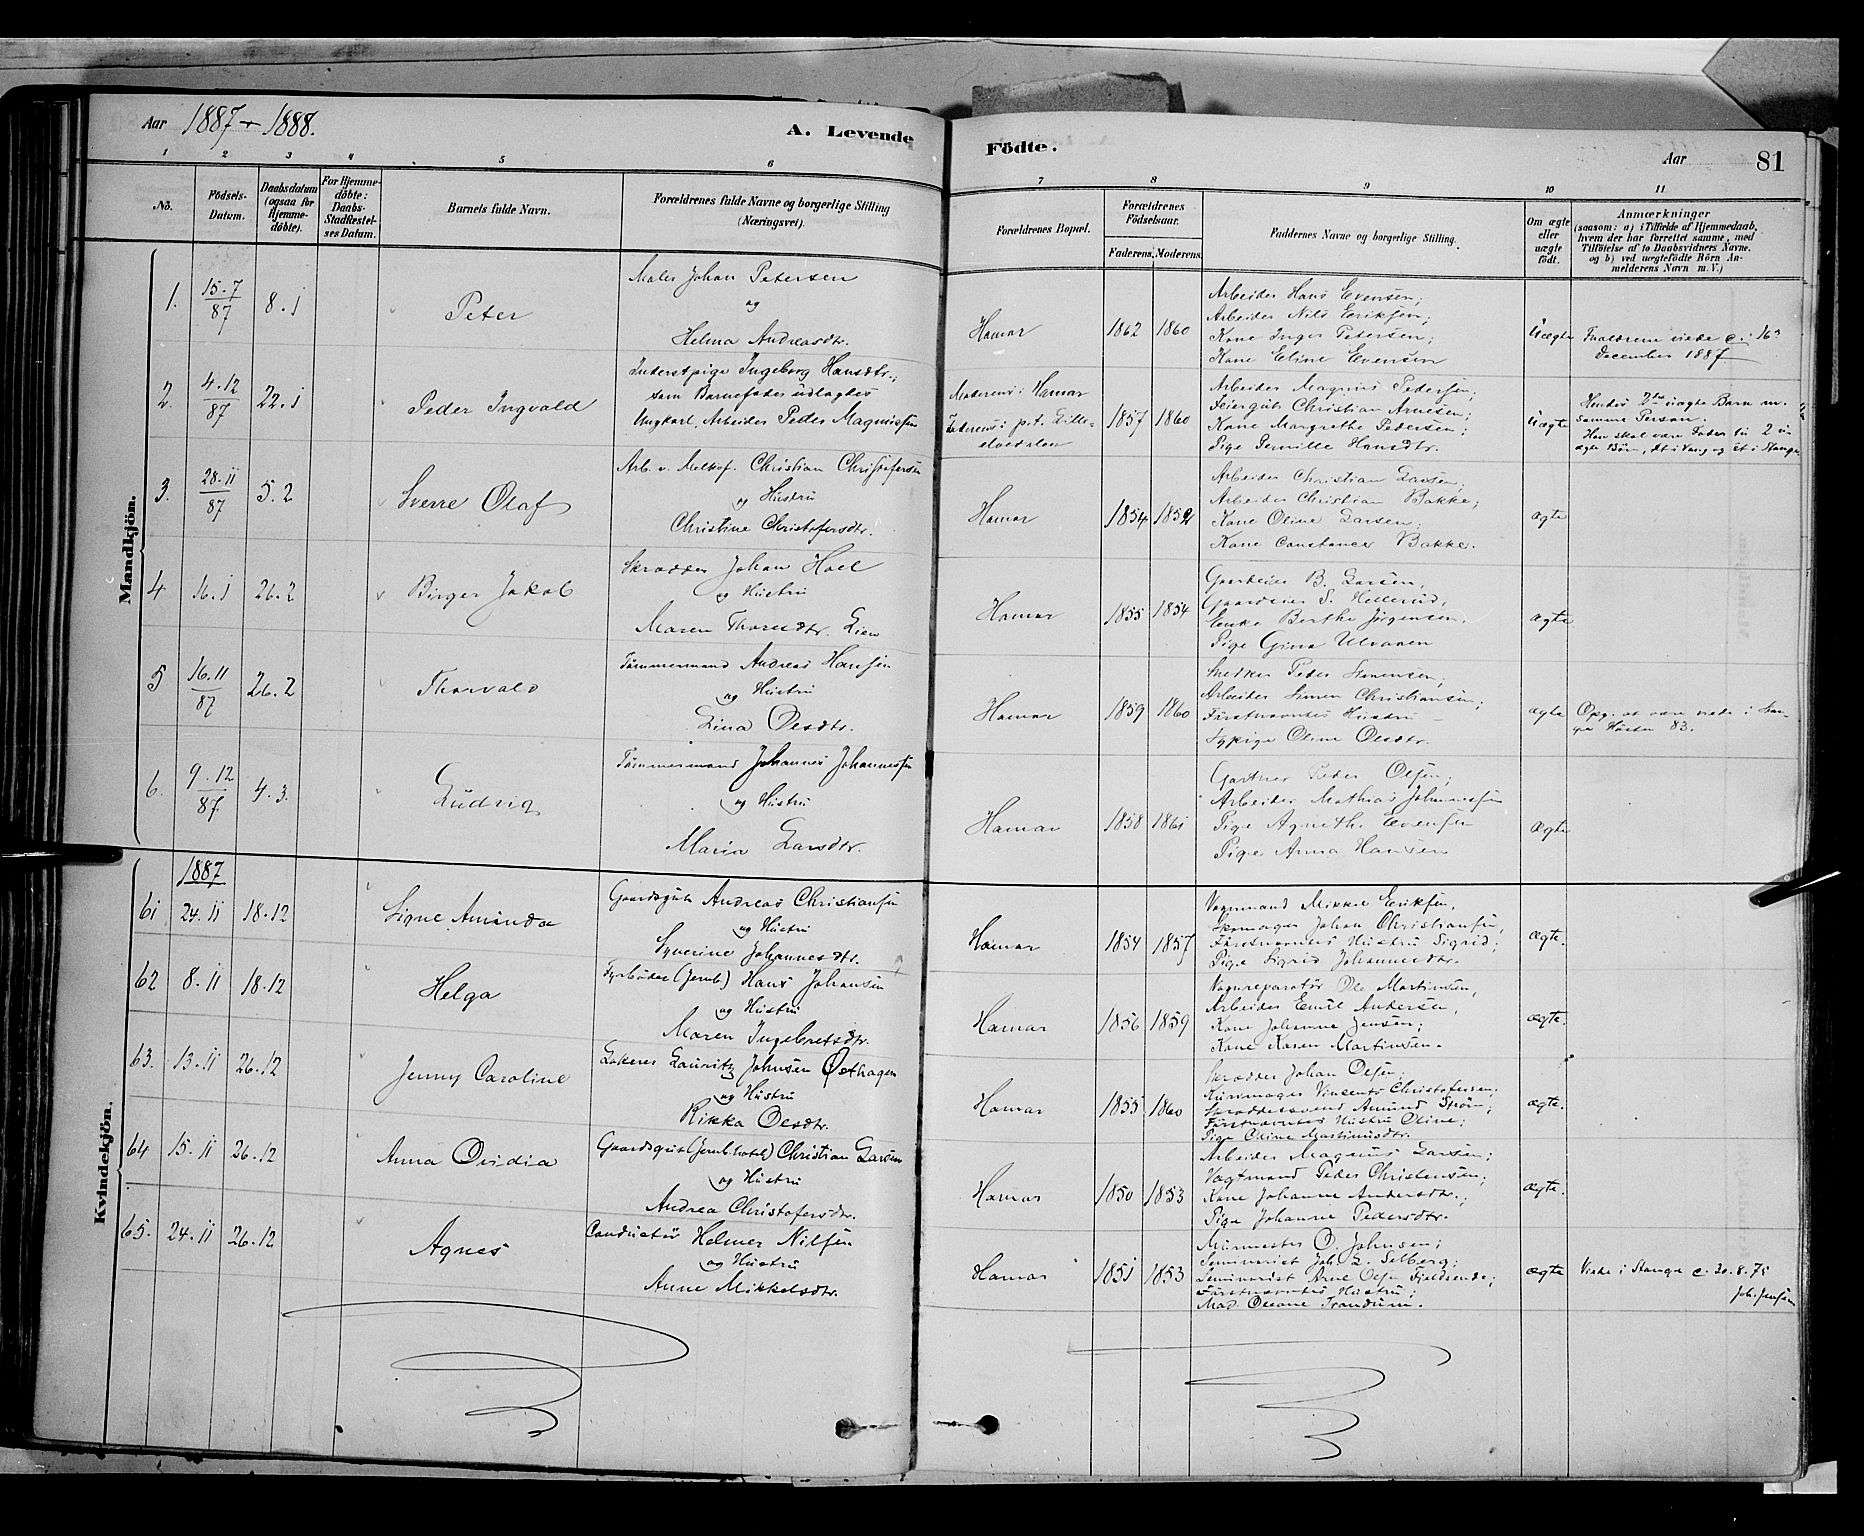 Aar 1887 - 1888.
A. Levende
Födte.
Aar
81
1 2 3 4 5 6 7 8 9 10 11
No.
Födsels-Datum.
Daabsdatum (ogsaa for Hjemmedöbte).
For Hjemmedöbte: Daabs-Stadfestelses Datum.
Barnets fulde Navn.
Forældrenes fulde Navne og borgerlige Stilling (Næringsvei).
Forældrenes Bopæl.
Forældrenes Födselsaar.
Faderens. Moderens.
Faddernes Navne og borgerlige Stilling.
Om ægte eller uægte födt.
Anmærkninger
(saasom: a) i Tilfælde af Hjemmedaab, hvem der har forrettet samme, med Tilföielse af to Daabsvidners Navne. og b) ved uægtefödte Börn Anmelderens Navn m. V.)
Mandkjön.
1. 15.7/87 8.1 Peter
Maler Johan Petersen
og
Helma Andreasdtr.
Hamar 1862 1860
Arbeider Hans Evensen;
Arbeider Nils Eriksen;
Kone Inger Petersen;
Kone Eline Evensen
Uægte
Forældrene viede c: 16
December 1887
2. 4.12/87 22.1 Peder Ingvald
Inderstpige Ingeborg Hansdtr.;
som Barnefader udlagdes
Ungkarl, Arbeider Peder Magnussen
Moderens: Hamar
Faderens: p.t. Lille-
elvedalen
1857 1860
Arbeider Magnus Pedersen;
Feiergut Christian Arnesen;
Kone Margrethe Pedersen;
Pige Pernille Hansdtr.
Uægte
Hendes 2det uægte Barn m.
samme Person.
Han skal være Fader til 2 u-
ægte Börn, et i Vang og et i Stange
3. 28.11/87 5.2 Sverre Olaf
Arb. v. Melkef. Christian Christofersen
og Hustru
Christine Christofersdtr.
Hamar 1854 1852
Arbeider Christian Larsen;
Arbeider Christian Bakke;
Kone Oline Larsen;
Kone Constance Bakke.
ægte
4 16.1 26.2 Birger Jakob
Skrædder Johan Hoel
og Hustru
Maren Thorsdtr. Lien
Hamar 1855 1854
Gaardeier B. Larsen,
Gaardeier S. Hellerud,
Enke Berthe Jörgensen.
Pige Gina Ulvanen
ægte
5 16.11/87 26.2 Thorvald
Tömmermand Andreas Hansen
og Hustru
Lina Olsdtr.
Hamar 1859 1860
Snedker Peder Simensen;
Arbeider Simen Christiansen;
Förstnævntes Hustru
Sypige Oline Olsdtr.
ægte
Opg. at være viede i Stan-
ge Hösten 83.
6. 9.12/87 4.3. Ludvig
Tömmermand Johannes Johannessen
og Hustru
Maria Larsdtr.
Hamar 1858 1861
Gartner Peder Olsen;
Arbeider Mathias Johannessen
Pige Agnethe Evensen
Pige Anna Hansen
ægte
Kvindekjön.
1887
61 24.11 18.12 Signe Aminda
Gaardsgut Andreas Christiansen
og Hustru
Syverine Johannesdtr.
Hamar 1854 1857
Vognmand Mikkel Eriksen,
Skomager Johan Christiansen,
Förstnævntes Hustru Sigrid;
Pige Sigrid Johannesdtr.
ægte.
62 8.11 18.12 Helga
Fyrböder (Jernb.) Hans Johansen
og Hustru
Maren Ingebretsdtr.
Hamar 1856 1859
Vognreparatör Ole Martinsen,
Arbeider Emil Andersen,
Kone Johanne Jensen;
Kone Karen Martinsen.
ægte.
63. 13.11 26.12 Jenny Caroline
Lakerer Lauritz Johnsen Østhagen
og Hustru
Rikka Olsdtr.
Hamar 1855 1860
Skrædder Johan Olsen;
Kurvmager Vincents Christofersen;
Skræddersvend Amund Spörn;
Förstnævntes Hustru Oline;
Pige Oline Martinusdtr.
ægte.
64 15.11 26.12 Anna Ovidia
Gaardsgut (Jernb.hotel) Christian Larsen
og Hustru
Andrea Christofersdtr.
Hamar 1850 1853
Arbeider Magnus Larsen;
Vægtmand Peder Christensen;
Kone Johanne Andersdtr.;
Pige Johanne Pedersdtr.
ægte.
65. 24.11 26.12 Agnes
Conductör Helmer Nilsen
og Hustru
Anne Mikkelsdtr.
Hamar 1851 1853
Murmester O. Johnsen;
Seminarist Joh. L. Selberg;
Seminarist Arne Olsen Fjeldsende;
Förstnævntes Hustru;
Mad. Oleane Trandum.
ægte
Viede i Stange c. 30.8.71
Joh. Jensen